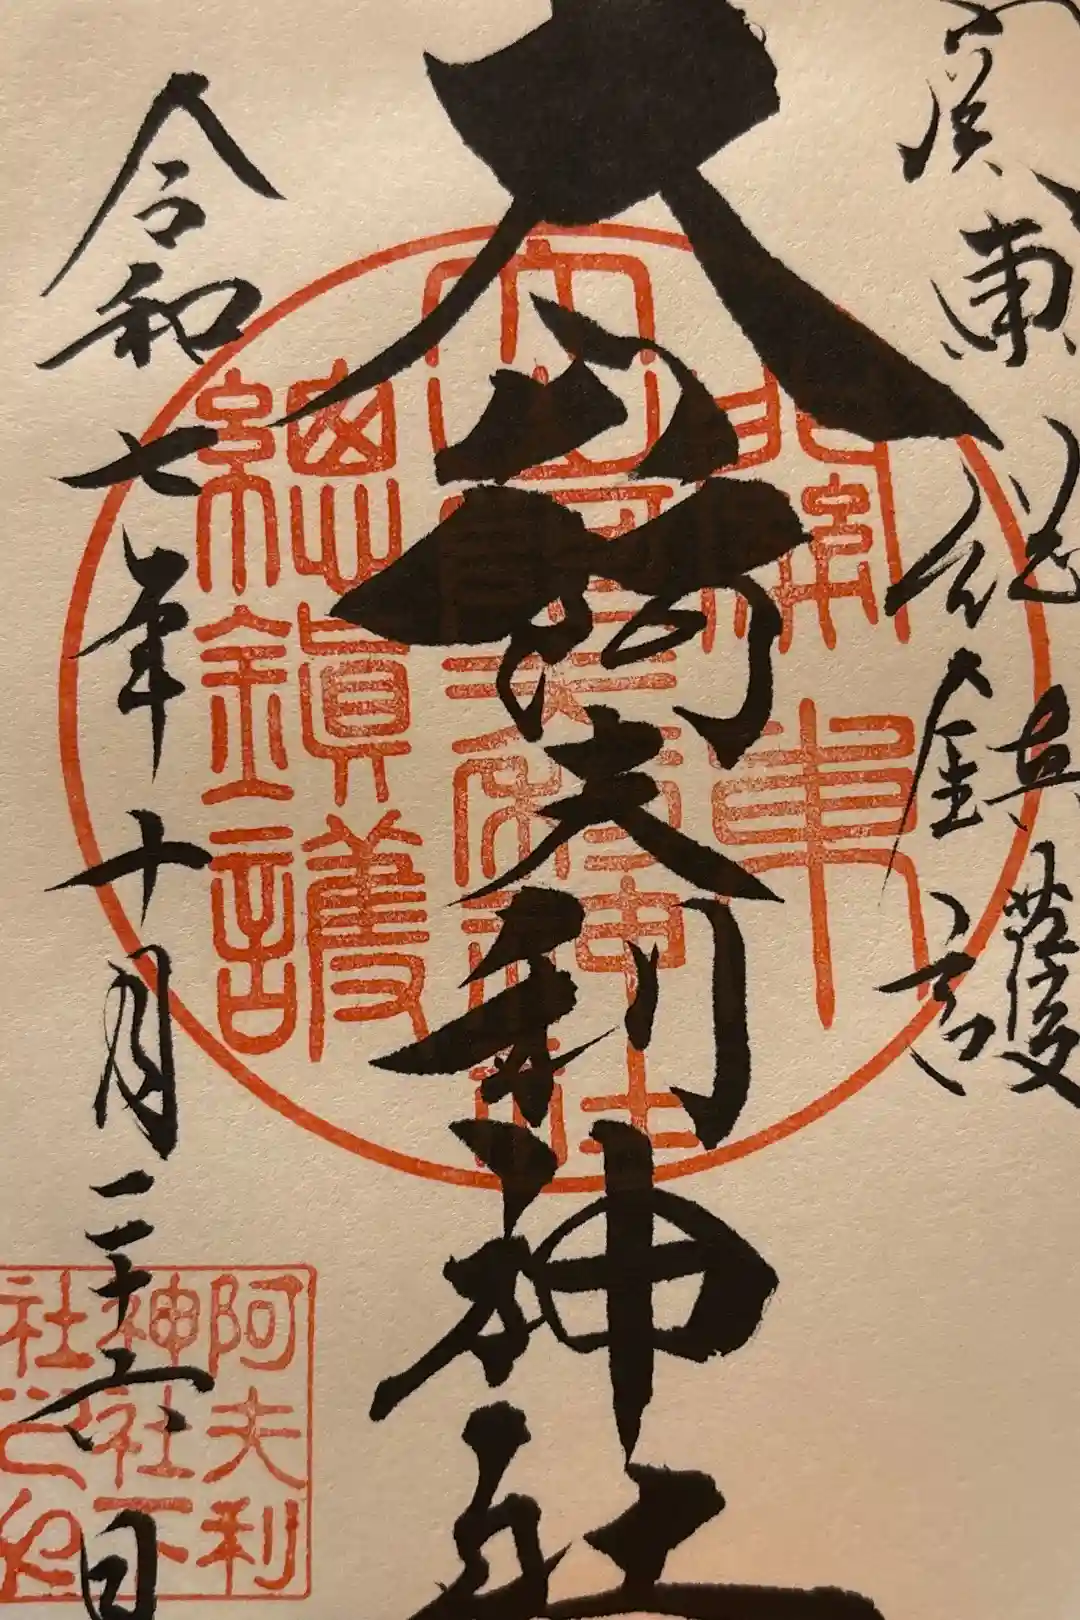 関東総鎮護
大山阿夫利神社
令和七年十月二十六日
關東
大山阿夫利神社
總鎮護
阿夫利
神社下
社之印